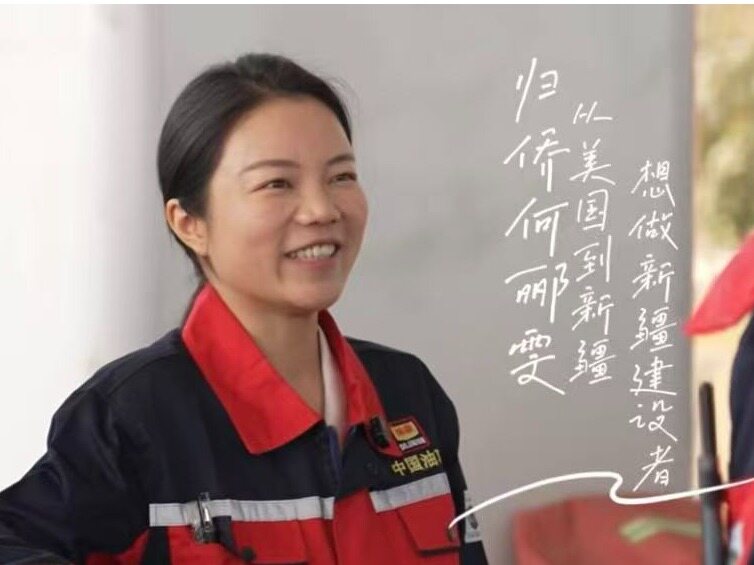 归侨何郦雯
从美国到新疆
想做新疆建设者
中国油